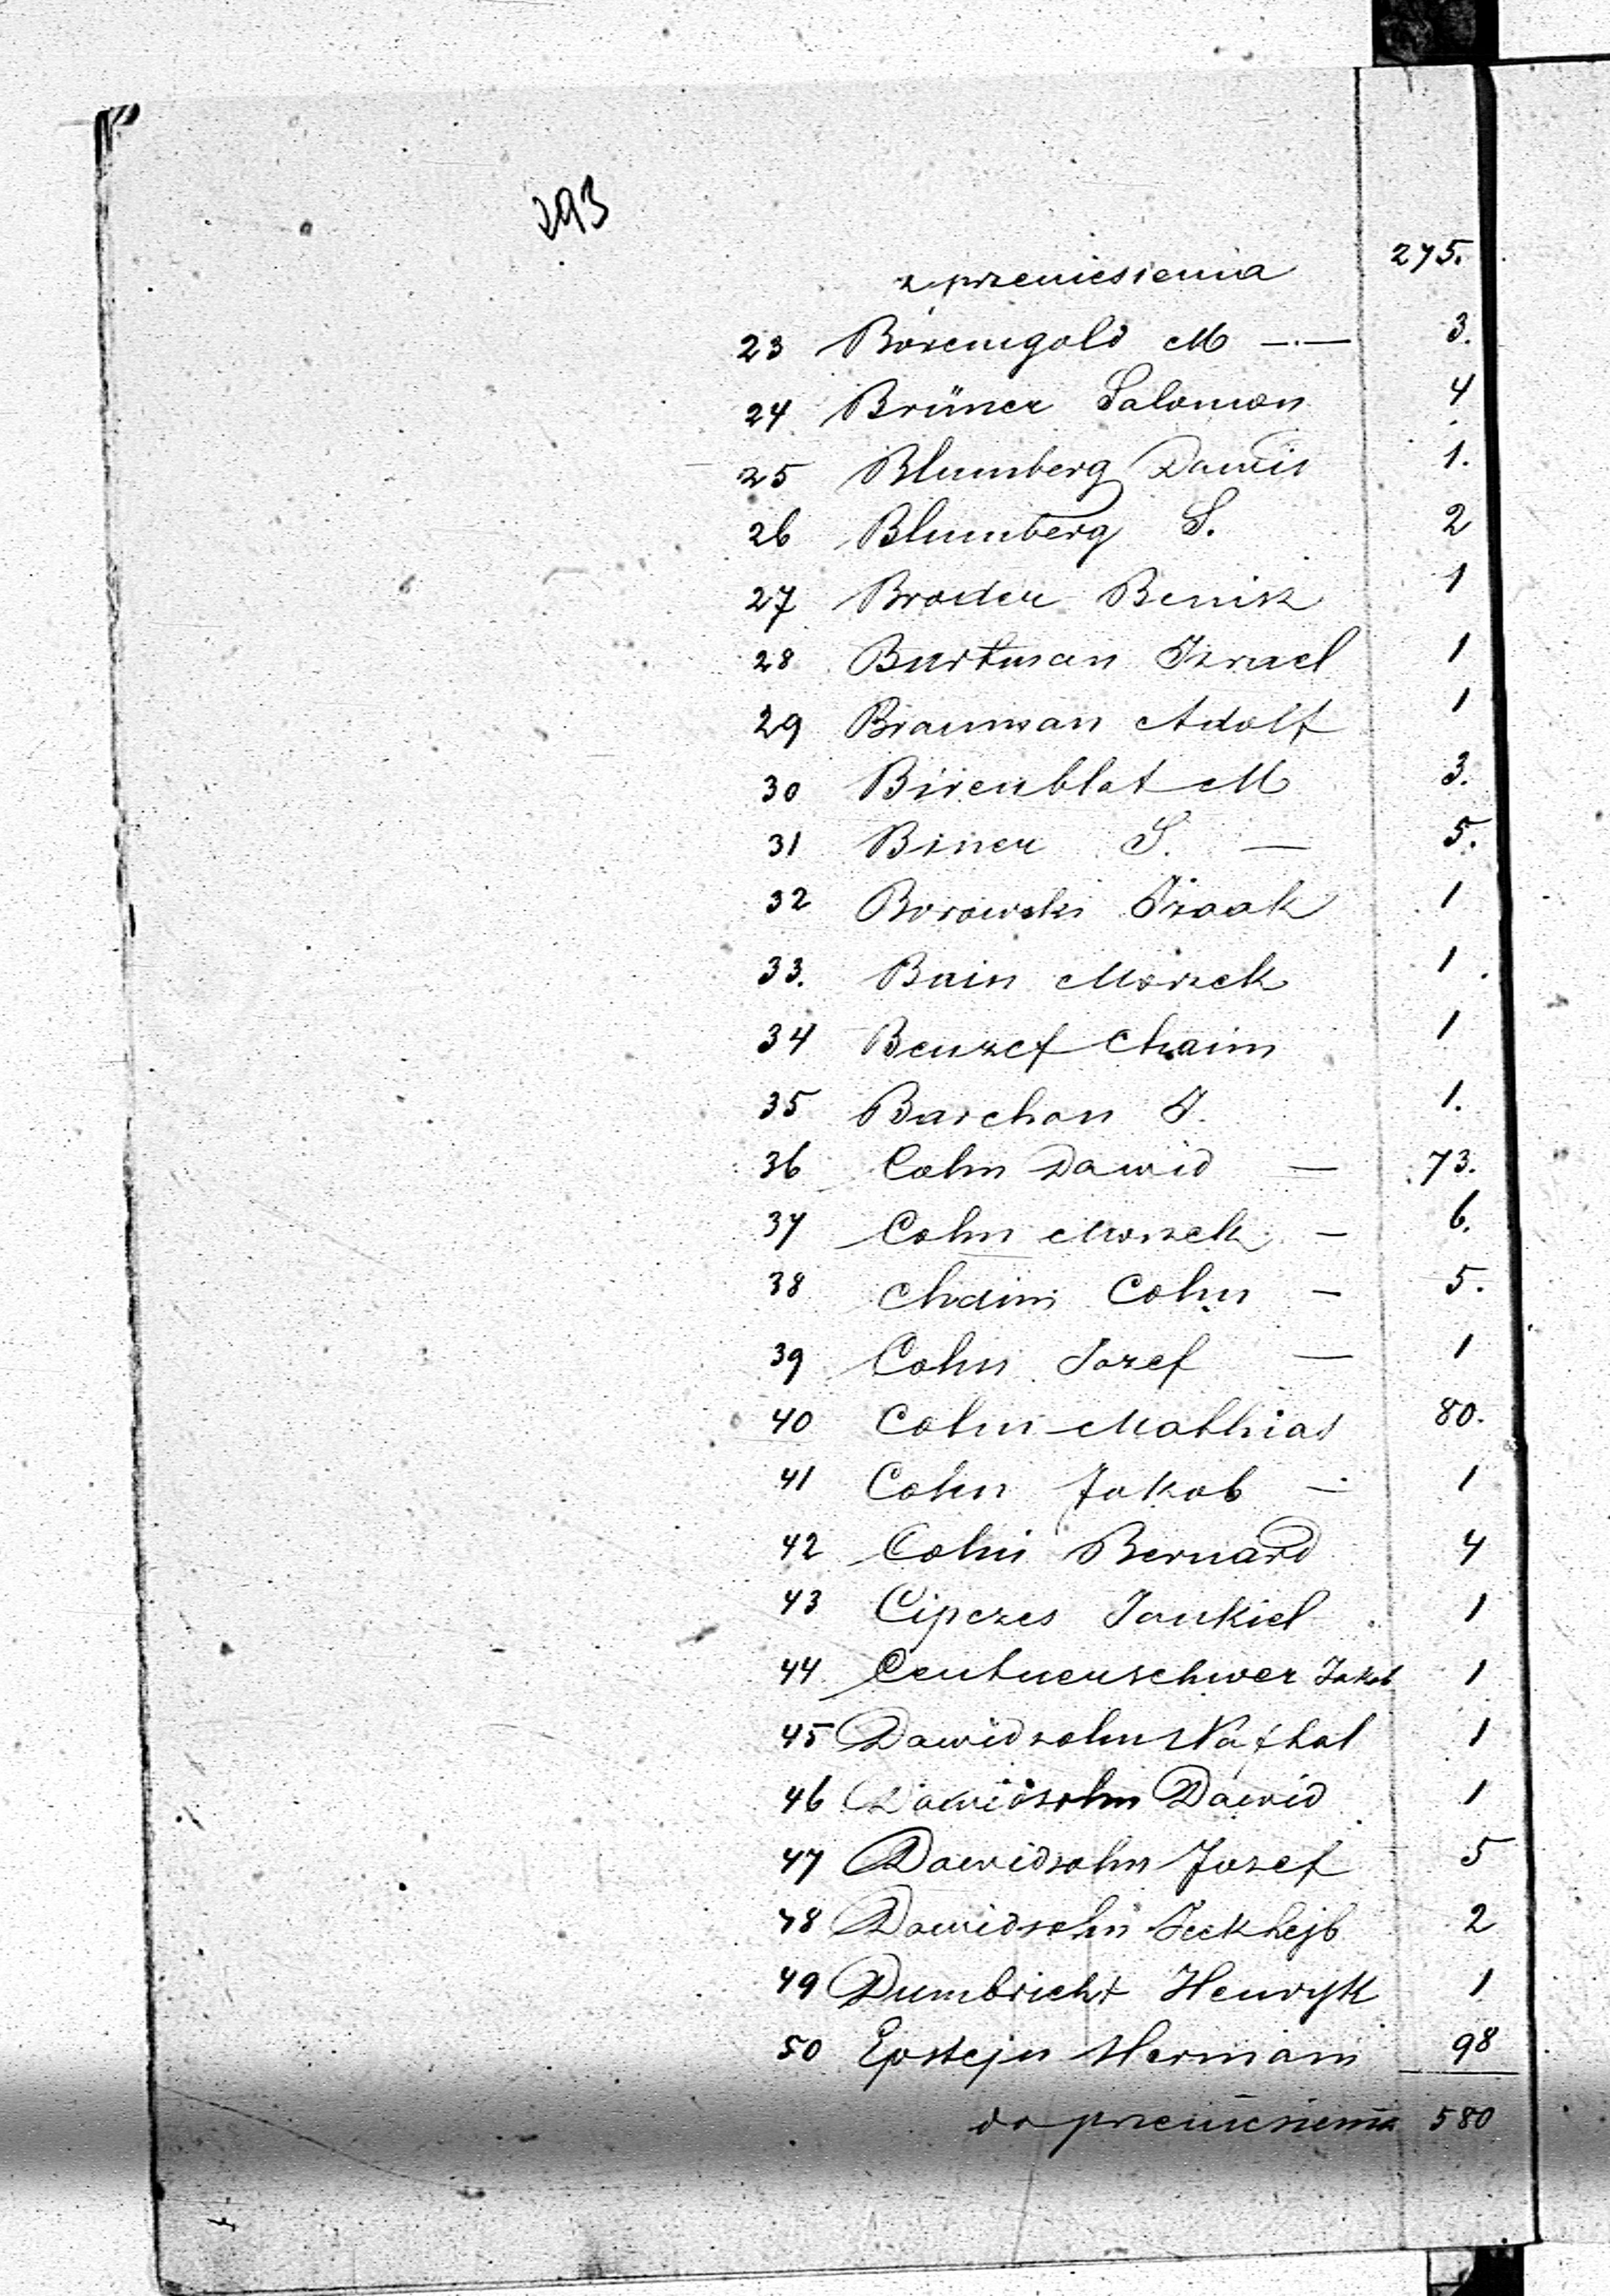 293
z przeniesienia 275.
23 Borengold M —.— 3.
24 Brüner Salomon 4
25 Blumberg Dawid 1.
26 Blumberg S. 2
27 Broder Benisz 1
28 Burtman Izrael 1
29 Brauman Adolf 1
30 Birenblat M 3.
31 Biner S. — 5.
32 Borowski Izaak 1
33. Bain Moszek 1
34 Benzef Chaim 1
35 Barchan I. 1.
36 Cohn Dawid — 73.
37 Cohn Moszek — 6.
38 Chaim Cohn — 5.
39 Cohn Jozef — 1
40 Cohn Mathias 80.
41 Cohn Jakob — 1
42 Cohn Bernard 4
43 Cipczes Jankiel 1
44 Centnerschwer Jakob 1
45 Dawidsohn Nafthal 1
46 Dawidsohn Dawid 1
47 Dawidsohn Jozef 5
48 Dawidsohn 2
49 Dumbricht Henryk 1
50 Epstejn Hermann 98
do przeniesienia 580